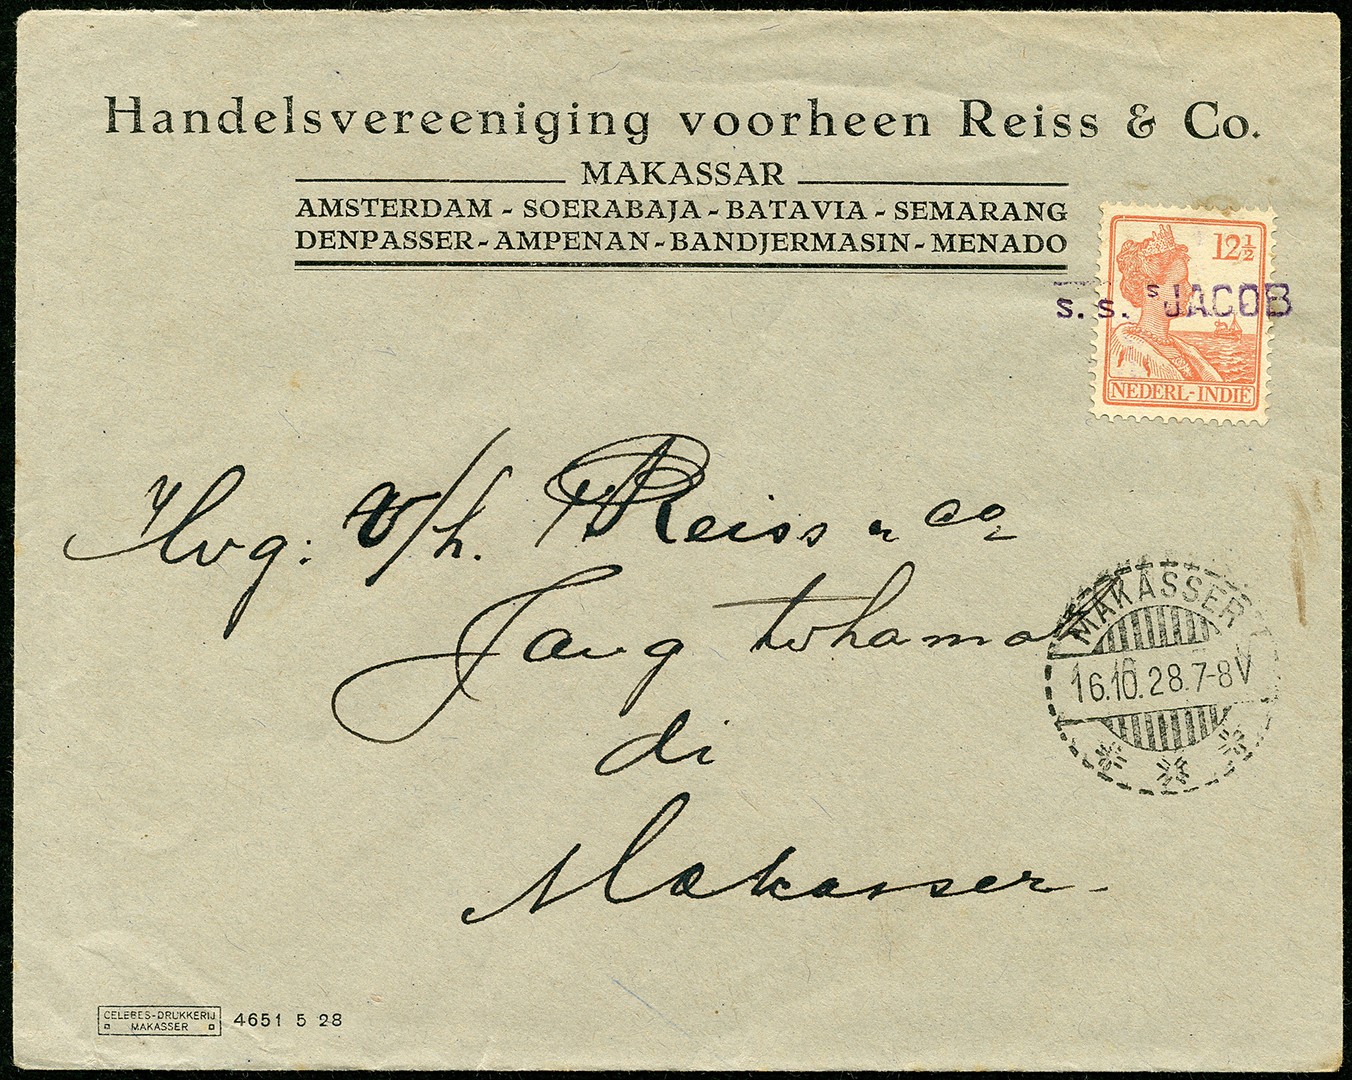 Handelsvereeniging voorheen Reiss & Co.
MAKASSAR
AMSTERDAM - SOERABAJA - BATAVIA - SEMARANG
DENPASSER - AMPENAN - BANDJERMASIN - MENADO
12½
s.s. "sJACOB
NEDERL-INDIË
Hvg: v/h. Reiss & Co
Jang
MAKASSER
16.10.28.7-8V
di
Makasser
CELEBES-DRUKKERIJ
MAKASSER
4651 5 28